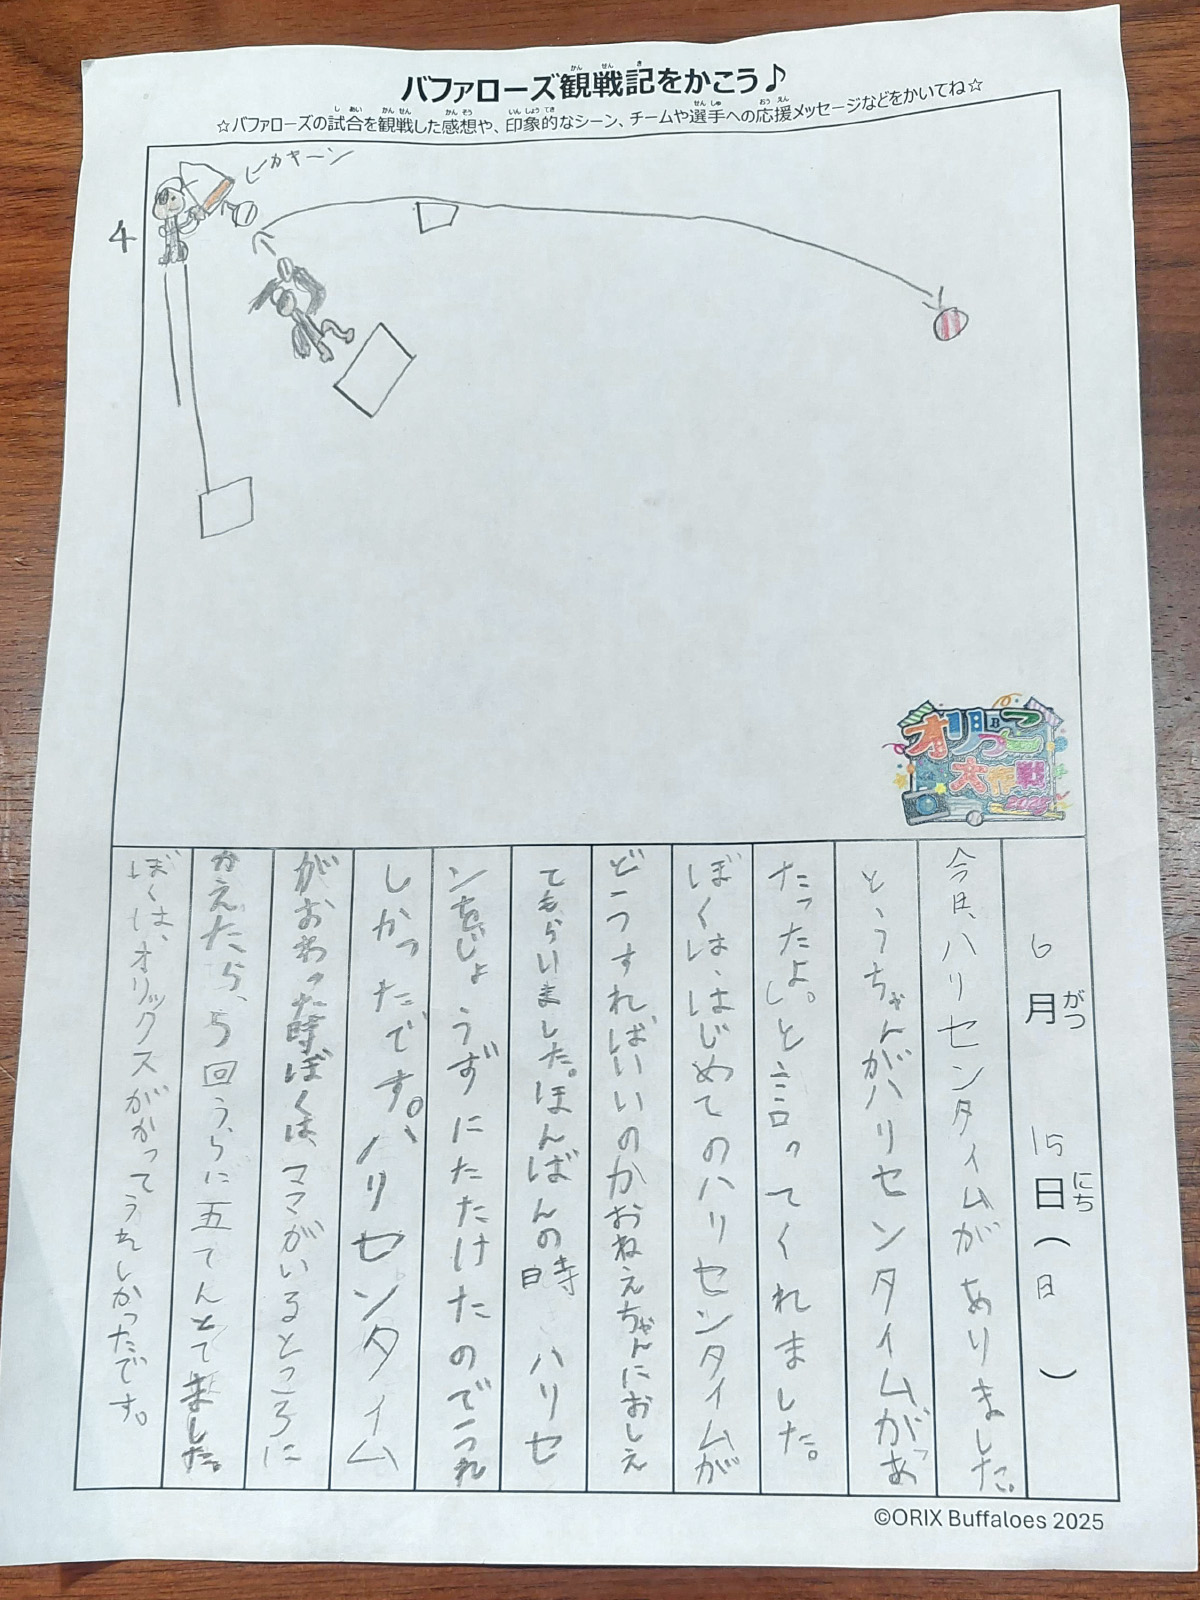 バファローズ観戦記をかこう♪
☆バファローズの試合を観戦した感想や、印象的なシーン、チームや選手への応援メッセージなどをかいてね☆
カキーン
4
オリっこ
大作戦
2025
6月15日(日)
今日、ハリセンタイムがありました。
とうちゃんがハリセンタイムがあっ
たったよ。」と言ってくれました。
ぼくは、はじめてのハリセンタイムが
どうすればいいのかおねえちゃんにおしえ
てもらいました。ほんばんの時、ハリセ
ンをじょうずにたたけたのでうれ
しかったです。ハリセンタイム
がおわった時ぼくは、ママがいるところに
かえたら、5回うらに五てんとて楽した。
ぼくは、オリックスがかってうれしかったです。
©ORIX Buffaloes 2025